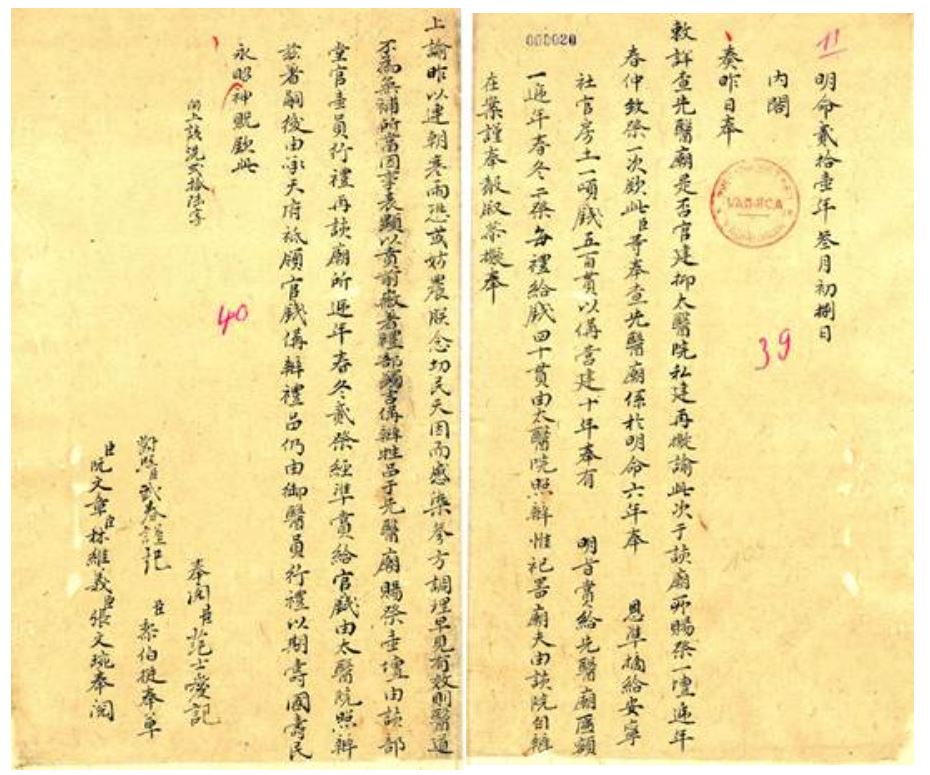 11
明命貳拾壹年叁月初捌日
內閣
奏昨日奉
敕詳查先醫廟是否官建抑太醫院私建再擬諭此次于該廟所賜祭一壇遞年
春仲致祭一次欽此臣等奉查先醫廟係於明命六年奉 恩準摘給安寧
社官房土一頃錢五百貫以僃营建十年奉有 明旨賞給先醫廟匾額
一遞年春冬二祭每禮給錢四十貫由太醫院照辦惟祀器廟夫由該院自
在案謹奉叙恭擬奉
000020
39
上諭昨以連朝寒雨恐或妨農朕念切民天因而感染參方調理早見有效則醫道
不為無補所當因事表顯以賁前徽著禮部擇吉僃辦牲品于先醫廟賜祭壹壇由該部
堂官壹員行禮再該廟所遞年春冬貳祭經準賞給官錢由太醫院照辦
茲著嗣後由承天府祗領官錢僃辦禮品仍由御醫員行禮以期壽國壽民
永昭神貺欽此
40
奉閱臣范士愛記
臣黎伯挺奉草
對照臣武春謹記
臣阮文章臣林維義臣張文琬奉閱